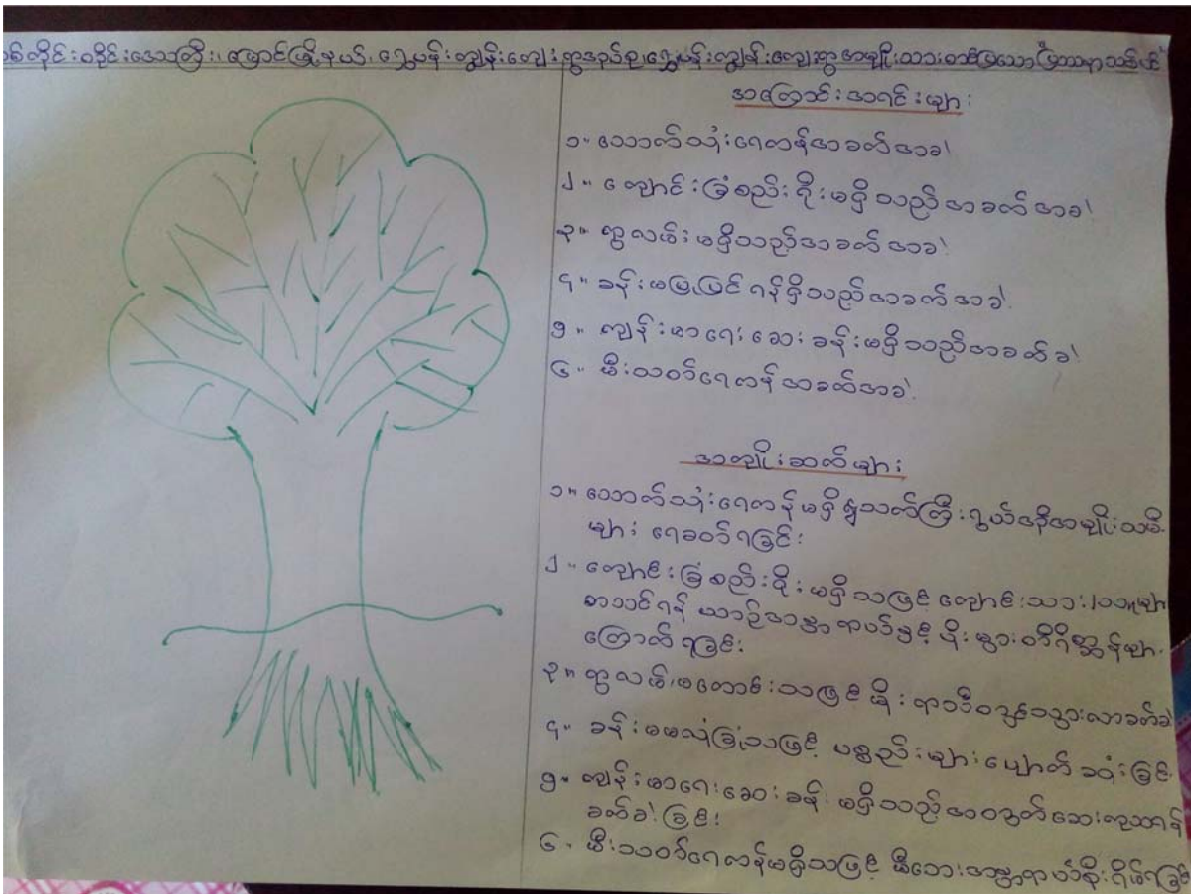 တိုင်းဒေသကြီး၊ မြောင်မြို့နယ်၊ ရွှေပန်းကျွန်းကျေးရွာအုပ်စု၊ ရွှေပန်းကျွန်းကျေးရွာအမျိုးသား
အကြောင်းအရင်းများ
၁။ သောက်သုံးရေကန်အခက်အခဲ
၂။ ကျောင်းခြံစည်းရိုးမရှိသည့်အခက်အခဲ
၃။ ရွာလမ်းမရှိသည့်အခက်အခဲ
၄။ ခန်းမပြုပြင်ရန်ရှိသည်အခက်အခဲ
၅။ ကျန်းမာရေးဆေးခန်းမရှိသည်အခက်ခဲ
၆။ မီးသတ်ရေကန်အခက်အခဲ
အကျိုးဆက်များ
၁။ သောက်သုံးရေကန်မရှိ၍သက်ကြီးရွယ်အိုအမျိုးသမီး
များ ရေခတ်ရခြင်း
၂။ ကျောင်းခြံစည်းရိုးမရှိသဖြင့် ကျောင်းသား/သူများ
စာသင်ရန် ယာဉ်အန္တရာယ်နှင့် ပိုးမွှားတိရိစ္ဆာန်များ
ကြောက်ရခြင်း
၃။ ရွာလမ်းမကောင်းသဖြင့် မိုးရာသီဝင်ထွက်သွားလာခက်ခဲ
၄။ ခန်းမမလုံခြုံသဖြင့် ပစ္စည်းများပျောက်ဆုံးခြင်း
၅။ ကျန်းမာရေးဆေးခန်းမရှိသည့်အတွက်ဆေးကုသရန်
ခက်ခဲခြင်း
၆။ မီးသတ်ရေကန်မရှိသဖြင့် မီးဘေးအန္တရာယ်စိုးရိမ်ရခြင်း